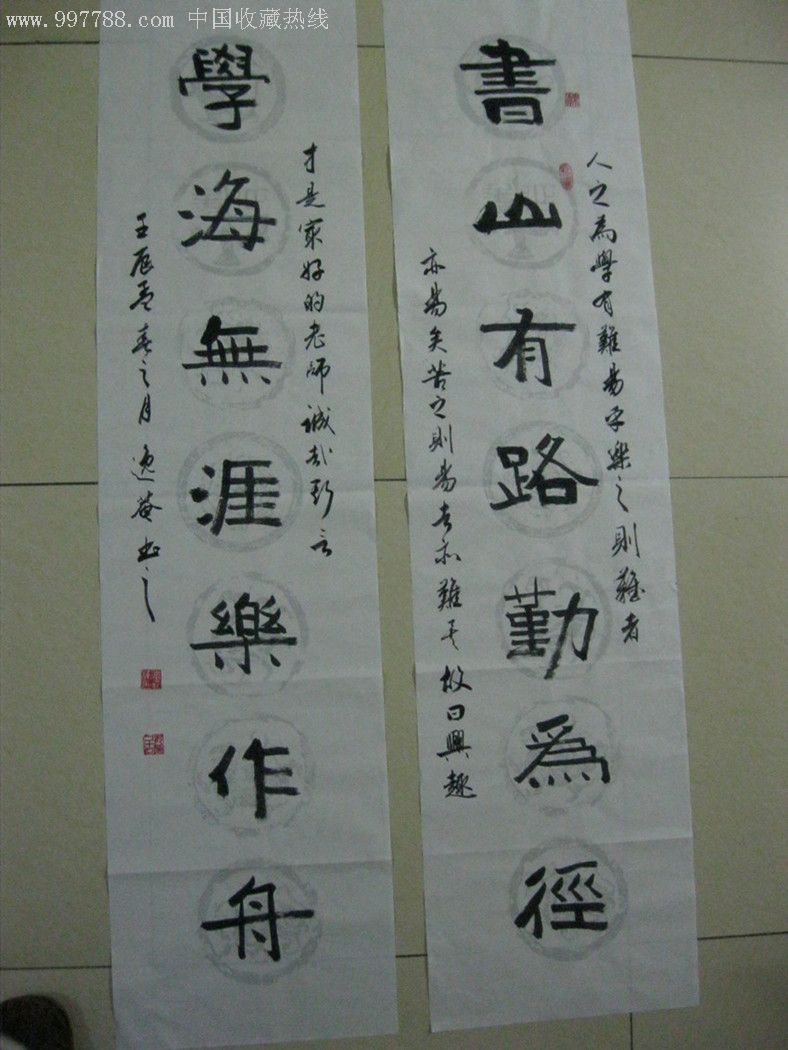 www.997788.com 中国收藏热线
書山有路勤為徑
人之為學有難易乎樂之則難者
亦易矣苦之則易者亦難矣故曰興趣
學海無涯樂作舟
才是最好的老師誠哉斯言
壬辰孟春之月逸菴書之